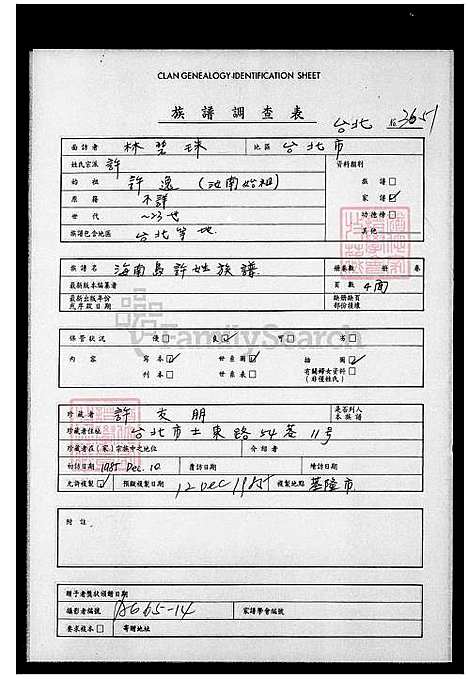 CLAN GENEALOGY IDENTIFICATION SHEET
族譜調查表
台北 No. 3651
面訪者 林碧珠 地區 台北市
姓氏宗派 許 資料類別
始祖 許逸 (汝南始祖) 族譜□
原籍 不詳 家譜☑
世代 ~23世 功德榜□
族譜包含地區 台北等地 其他
族譜名 海南島許姓族譜 冊卷數 冊 卷
最新版本編纂者 頁數 4面
最新出版年份或序跋日期 缺冊缺頁部份後補
FamilySearch
保管狀況 優□ 良☑ 可□ 劣□
內容 寫本☑ 世系圖☑ 插圖☑
刊本□ 世系表□ 有關婦女資料□ (非僅姓氏)
珍藏者 許友朋 是否列入本族譜
珍藏者住址 台北市士東路54巷11号
珍藏者在(家)宗族中之地位 介紹者
初訪日期 1985 Dec. 10 覆訪日期 增訪日期
允許複製☑ 預擬複製日期 12 Dec 1985 複製地點 基隆市
附註
贈予者獎狀頒贈日期
攝影者編號 AG65-14 家譜學會編號
要求複本□ 寄贈地址